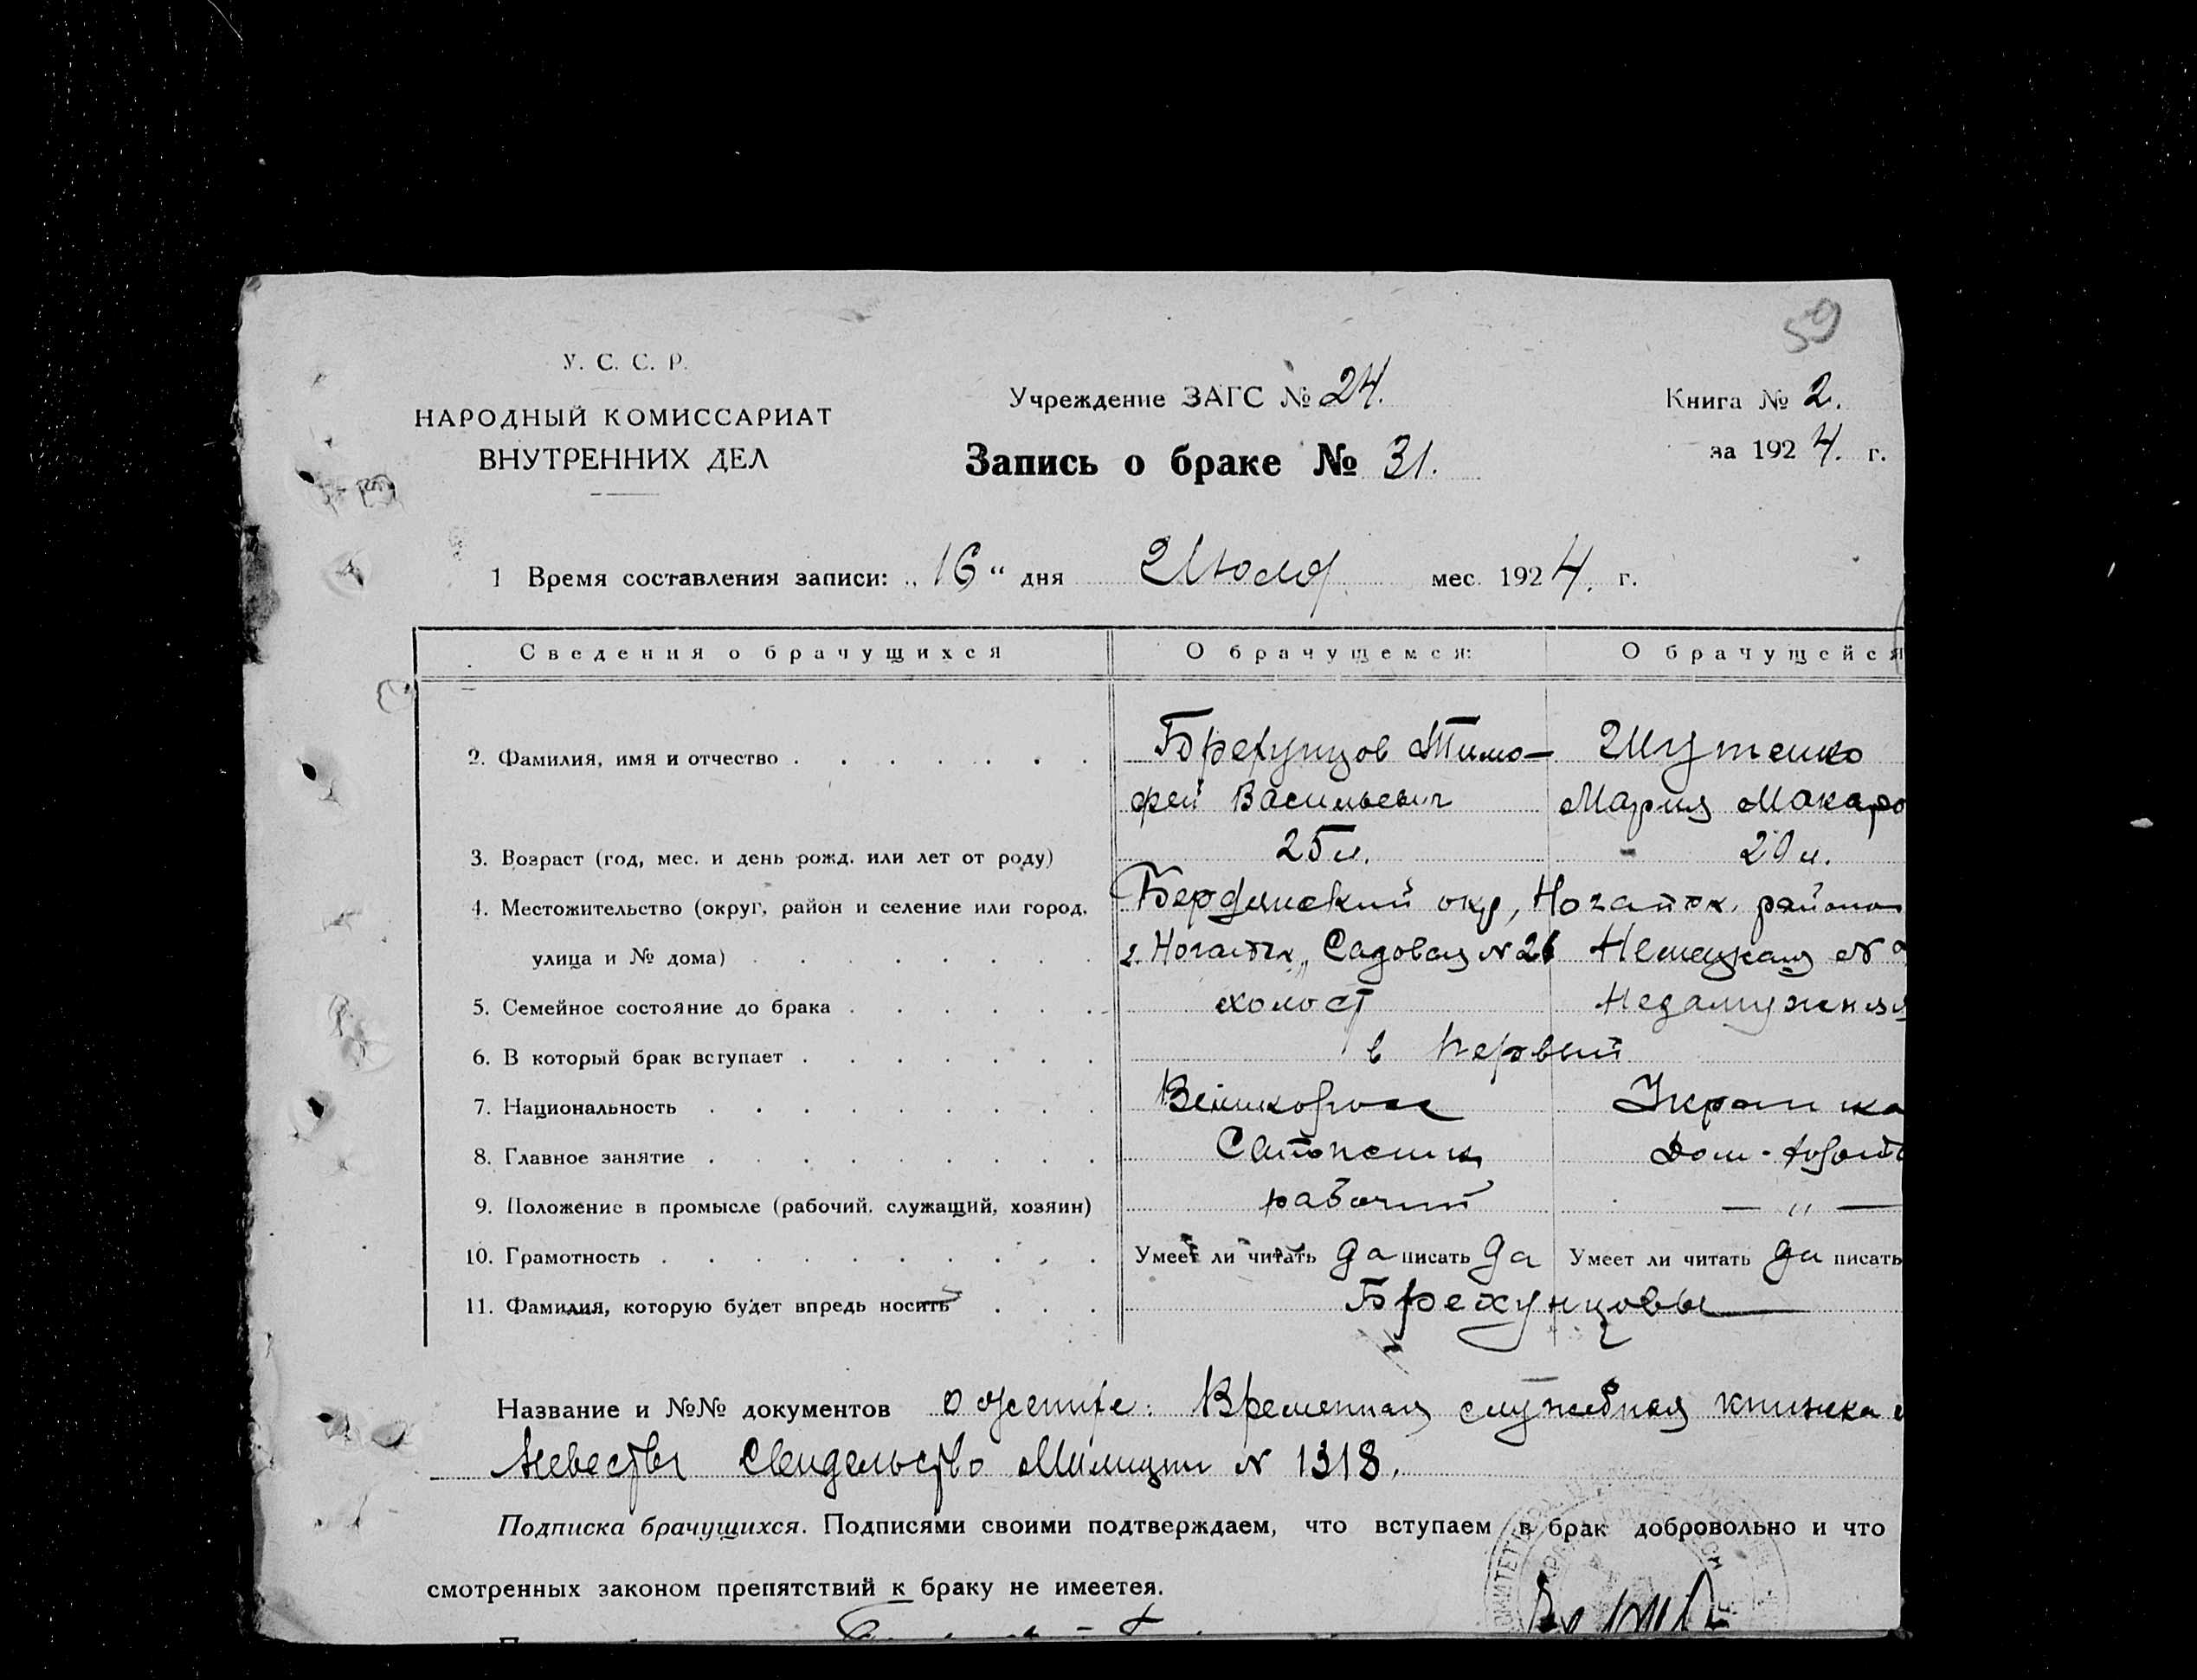 59
У. С. С. Р.
НАРОДНЫЙ КОМИССАРИАТ
ВНУТРЕННИХ ДЕЛ
Учреждение ЗАГС № 24.
Запись о браке № 31.
Книга № 2.
за 1924. г.
1 Время составления записи: „16“ дня Июля мес. 1924. г.
Сведения о брачущихся О брачущемся: О брачущейся
2. Фамилия, имя и отчество Брехунцов Тимо- Шутенко
фей Васильевич Мария Макаро
3. Возраст (год, мес. и день рожд. или лет от роду) 25 л. 20 л.
4. Местожительство (округ, район и селение или город, Бердянский окр, Ногайск. района
улица и № дома) г. Ногайск, Садовая N 26 Немецкая N
5. Семейное состояние до брака холост Незамужняя
6. В который брак вступает в первый
7. Национальность Великоросс Украинка
8. Главное занятие Сапожник Дом.
9. Положение в промысле (рабочий, служащий, хозяин) рабочий — „ —
10. Грамотность Умеет ли читать да писать да Умеет ли читать да писать
11. Фамилия, которую будет впредь носить Брехунцовы
Название и №№ документов о женихе: Временная служебная книжка
невесты Свидельство Милиции N 1318.
Подписка брачущихся. Подписями своими подтверждаем, что вступаем в брак добровольно и что
смотренных законом препятствий к браку не имеетея.